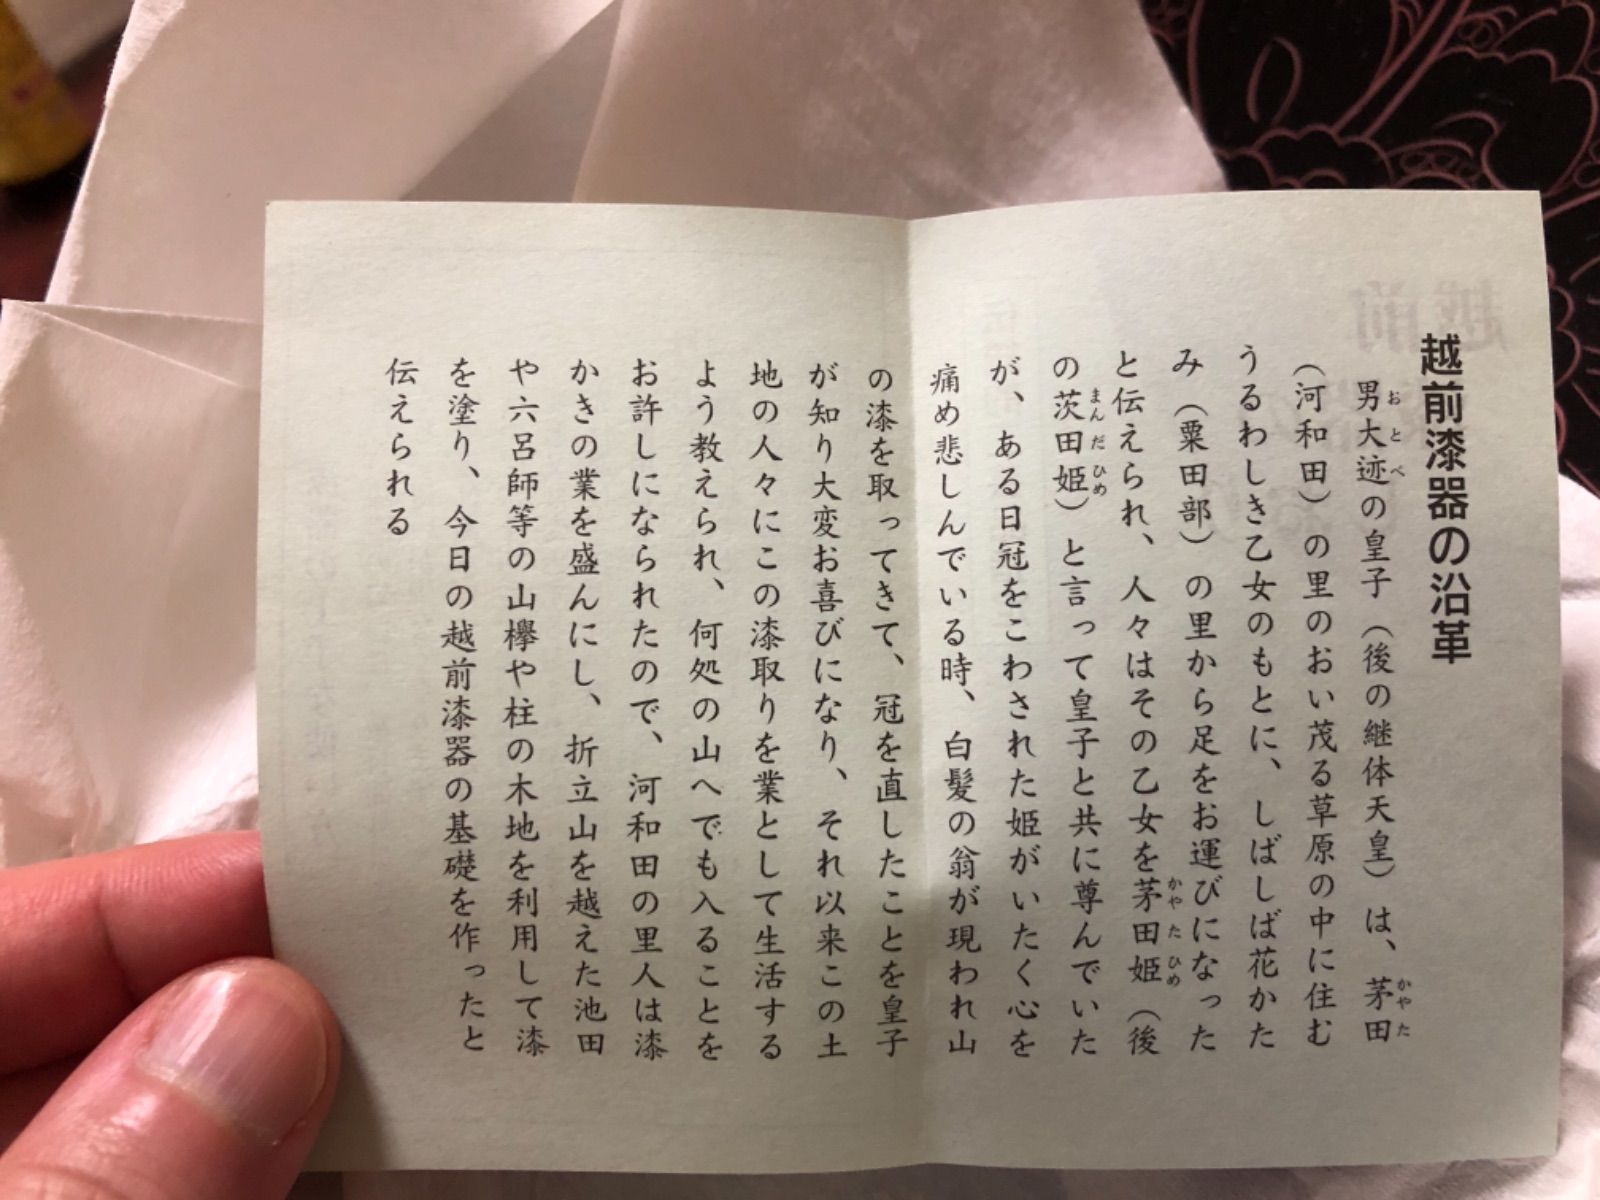 越前漆器の沿革
男大迹の皇子（後の継体天皇）は、茅田
（河和田）の里のおい茂る草原の中に住む
うるわしき乙女のもとに、しばしば花かた
み（粟田部）の里から足をお運びになった
と伝えられ、人々はその乙女を茅田姫（後
の茨田姫）と言って皇子と共に尊んでいた
が、ある日冠をこわされた姫がいたく心を
痛め悲しんでいる時、白髪の翁が現われ山
の漆を取ってきて、冠を直したことを皇子
が知り大変お喜びになり、それ以来この土
地の人々にこの漆取りを業として生活する
よう教えられ、何処の山へでも入ることを
お許しになられたので、河和田の里人は漆
かきの業を盛んにし、折立山を越えた池田
や六呂師等の山欅や柱の木地を利用して漆
を塗り、今日の越前漆器の基礎を作ったと
伝えられる